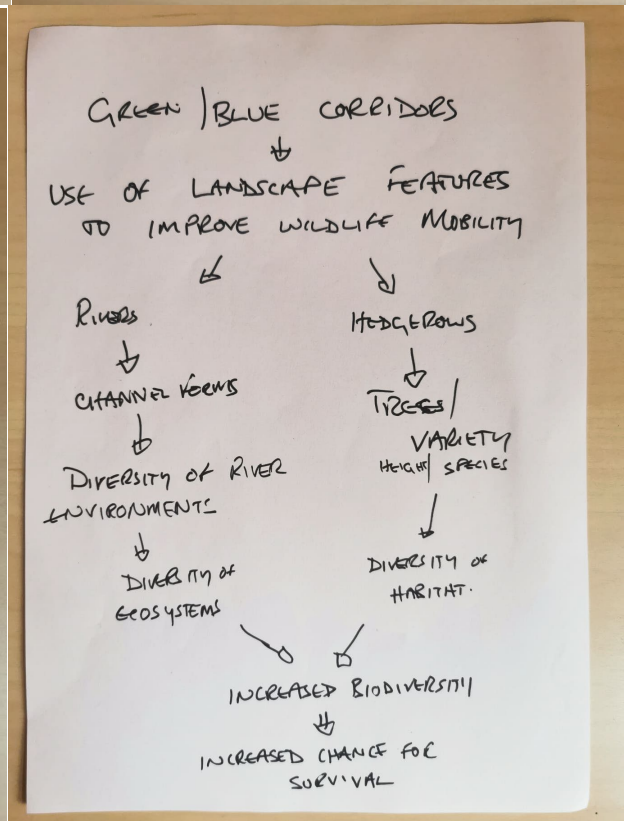 GREEN/BLUE CORRIDORS
USE OF LANDSCAPE FEATURES
TO IMPROVE WILDLIFE MOBILITY
RIVERS
CHANNEL FORMS
DIVERSITY OF RIVER
ENVIRONMENTS
DIVERSITY OF
ECOSYSTEMS
HEDGEROWS
TREES/
VARIETY
HEIGHT/SPECIES
DIVERSITY OF
HABITAT.
INCREASED BIODIVERSITY
INCREASED CHANCE FOR
SURVIVAL